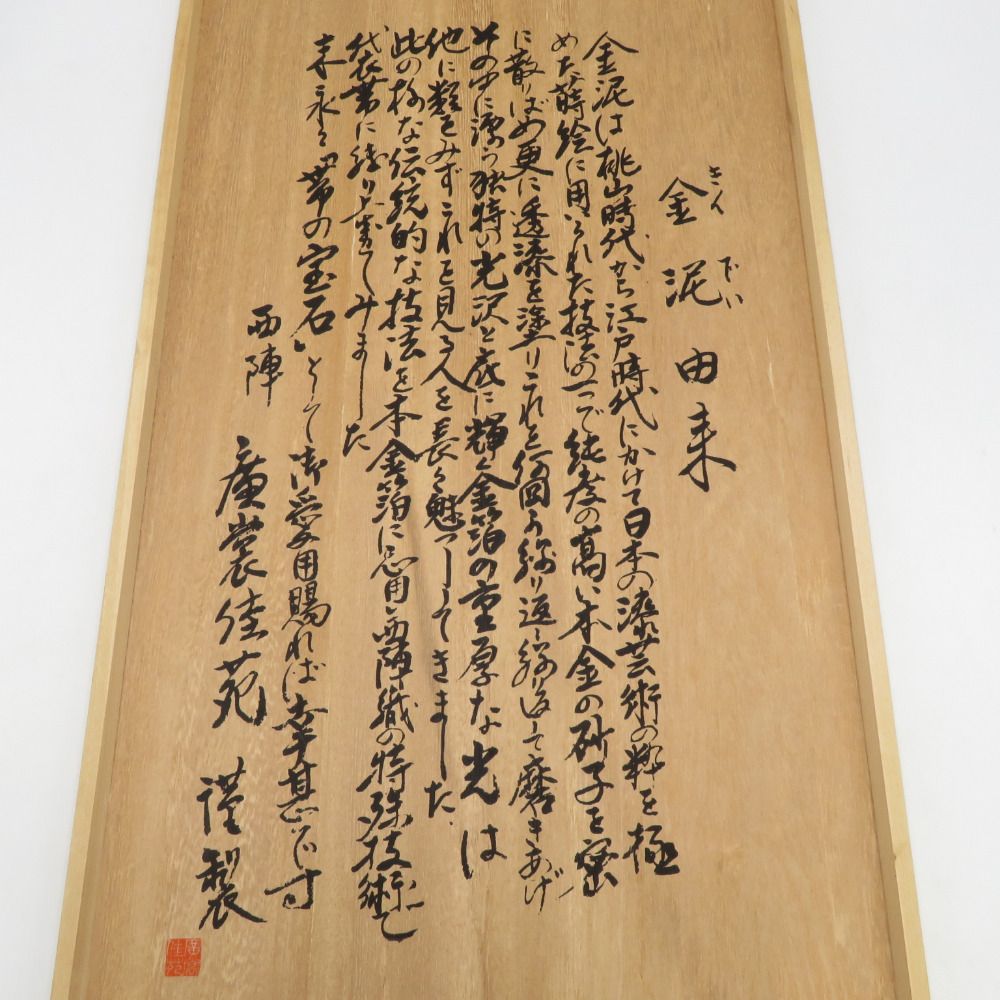 金泥由来
きん でい
金泥は桃山時代から江戸時代にかけて日本の漆芸術の粋を極
めた蒔絵に用いられた技法の一つで純度の高い本金の砂子を密
に散りばめ更に透漆を塗りこれを何回も繰り返し繰り返して磨きあげ
その中に漂う独特の光沢と底に輝く金箔の重厚な光は
他に類をみずこれを見る人を長く魅了してきました
此の様な伝統的な技法を本金箔に応用し西陣織の特殊技術で
袋帯に織り上げてみました
末永く「帯の宝石」として御愛用賜れば幸甚です
西陣 廣裳佳苑 謹製